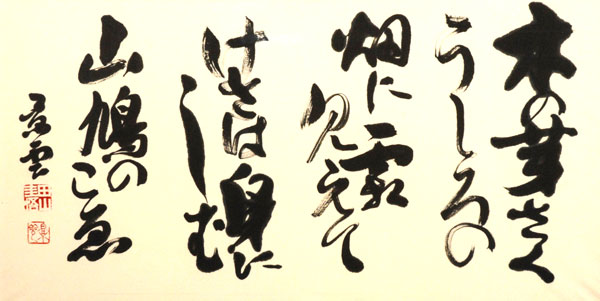 木の芽さく
うしろの
畑に霜
見えて
けさは身に
しむ
山鳩のこゑ